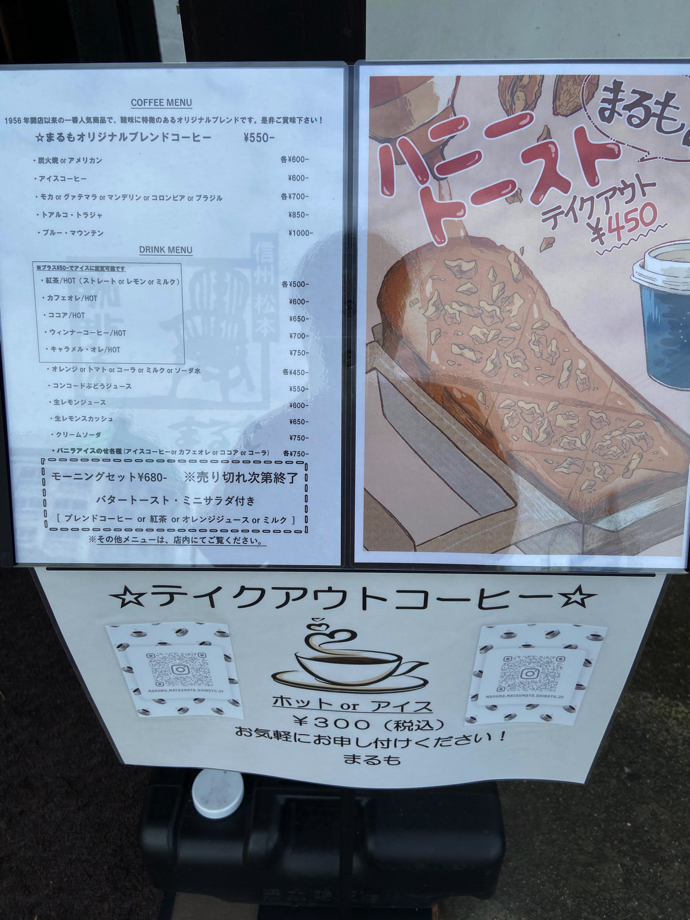 COFFEE MENU
1956年開店以来の一番人気商品で、酸味に特徴のあるオリジナルブレンドです。是非ご賞味下さい！
☆まるもオリジナルブレンドコーヒー ¥550-
・炭火焼 or アメリカン 各¥600-
・アイスコーヒー ¥600-
・モカ or グァテマラ or マンデリン or コロンビア or ブラジル 各¥700-
・トアルコ・トラジャ ¥850-
・ブルー・マウンテン ¥1000-
DRINK MENU
※プラス¥50-でアイスに変更可能です
・紅茶/HOT（ストレート or レモン or ミルク） 各¥500-
・カフェオレ/HOT ¥600-
・ココア/HOT ¥650-
・ウィンナーコーヒー/HOT ¥700-
・キャラメル・オレ/HOT ¥750-
・オレンジ or トマト or コーラ or ミルク or ソーダ水 各¥450-
・コンコードぶどうジュース ¥550-
・生レモンジュース ¥600-
・生レモンスカッシュ ¥650-
・クリームソーダ ¥750-
・バニラアイスのせ各種（アイスコーヒー or カフェオレ or ココア or コーラ） 各¥750-
モーニングセット¥680- ※売り切れ次第終了
バタートースト・ミニサラダ付き
［ ブレンドコーヒー or 紅茶 or オレンジジュース or ミルク ］
※その他メニューは、店内にてご覧ください。
信州 松本
まるも
ハニー
トースト
テイクアウト
¥450
☆テイクアウトコーヒー☆
ホット or アイス
￥３００（税込）
お気軽にお申し付けください！
まるも